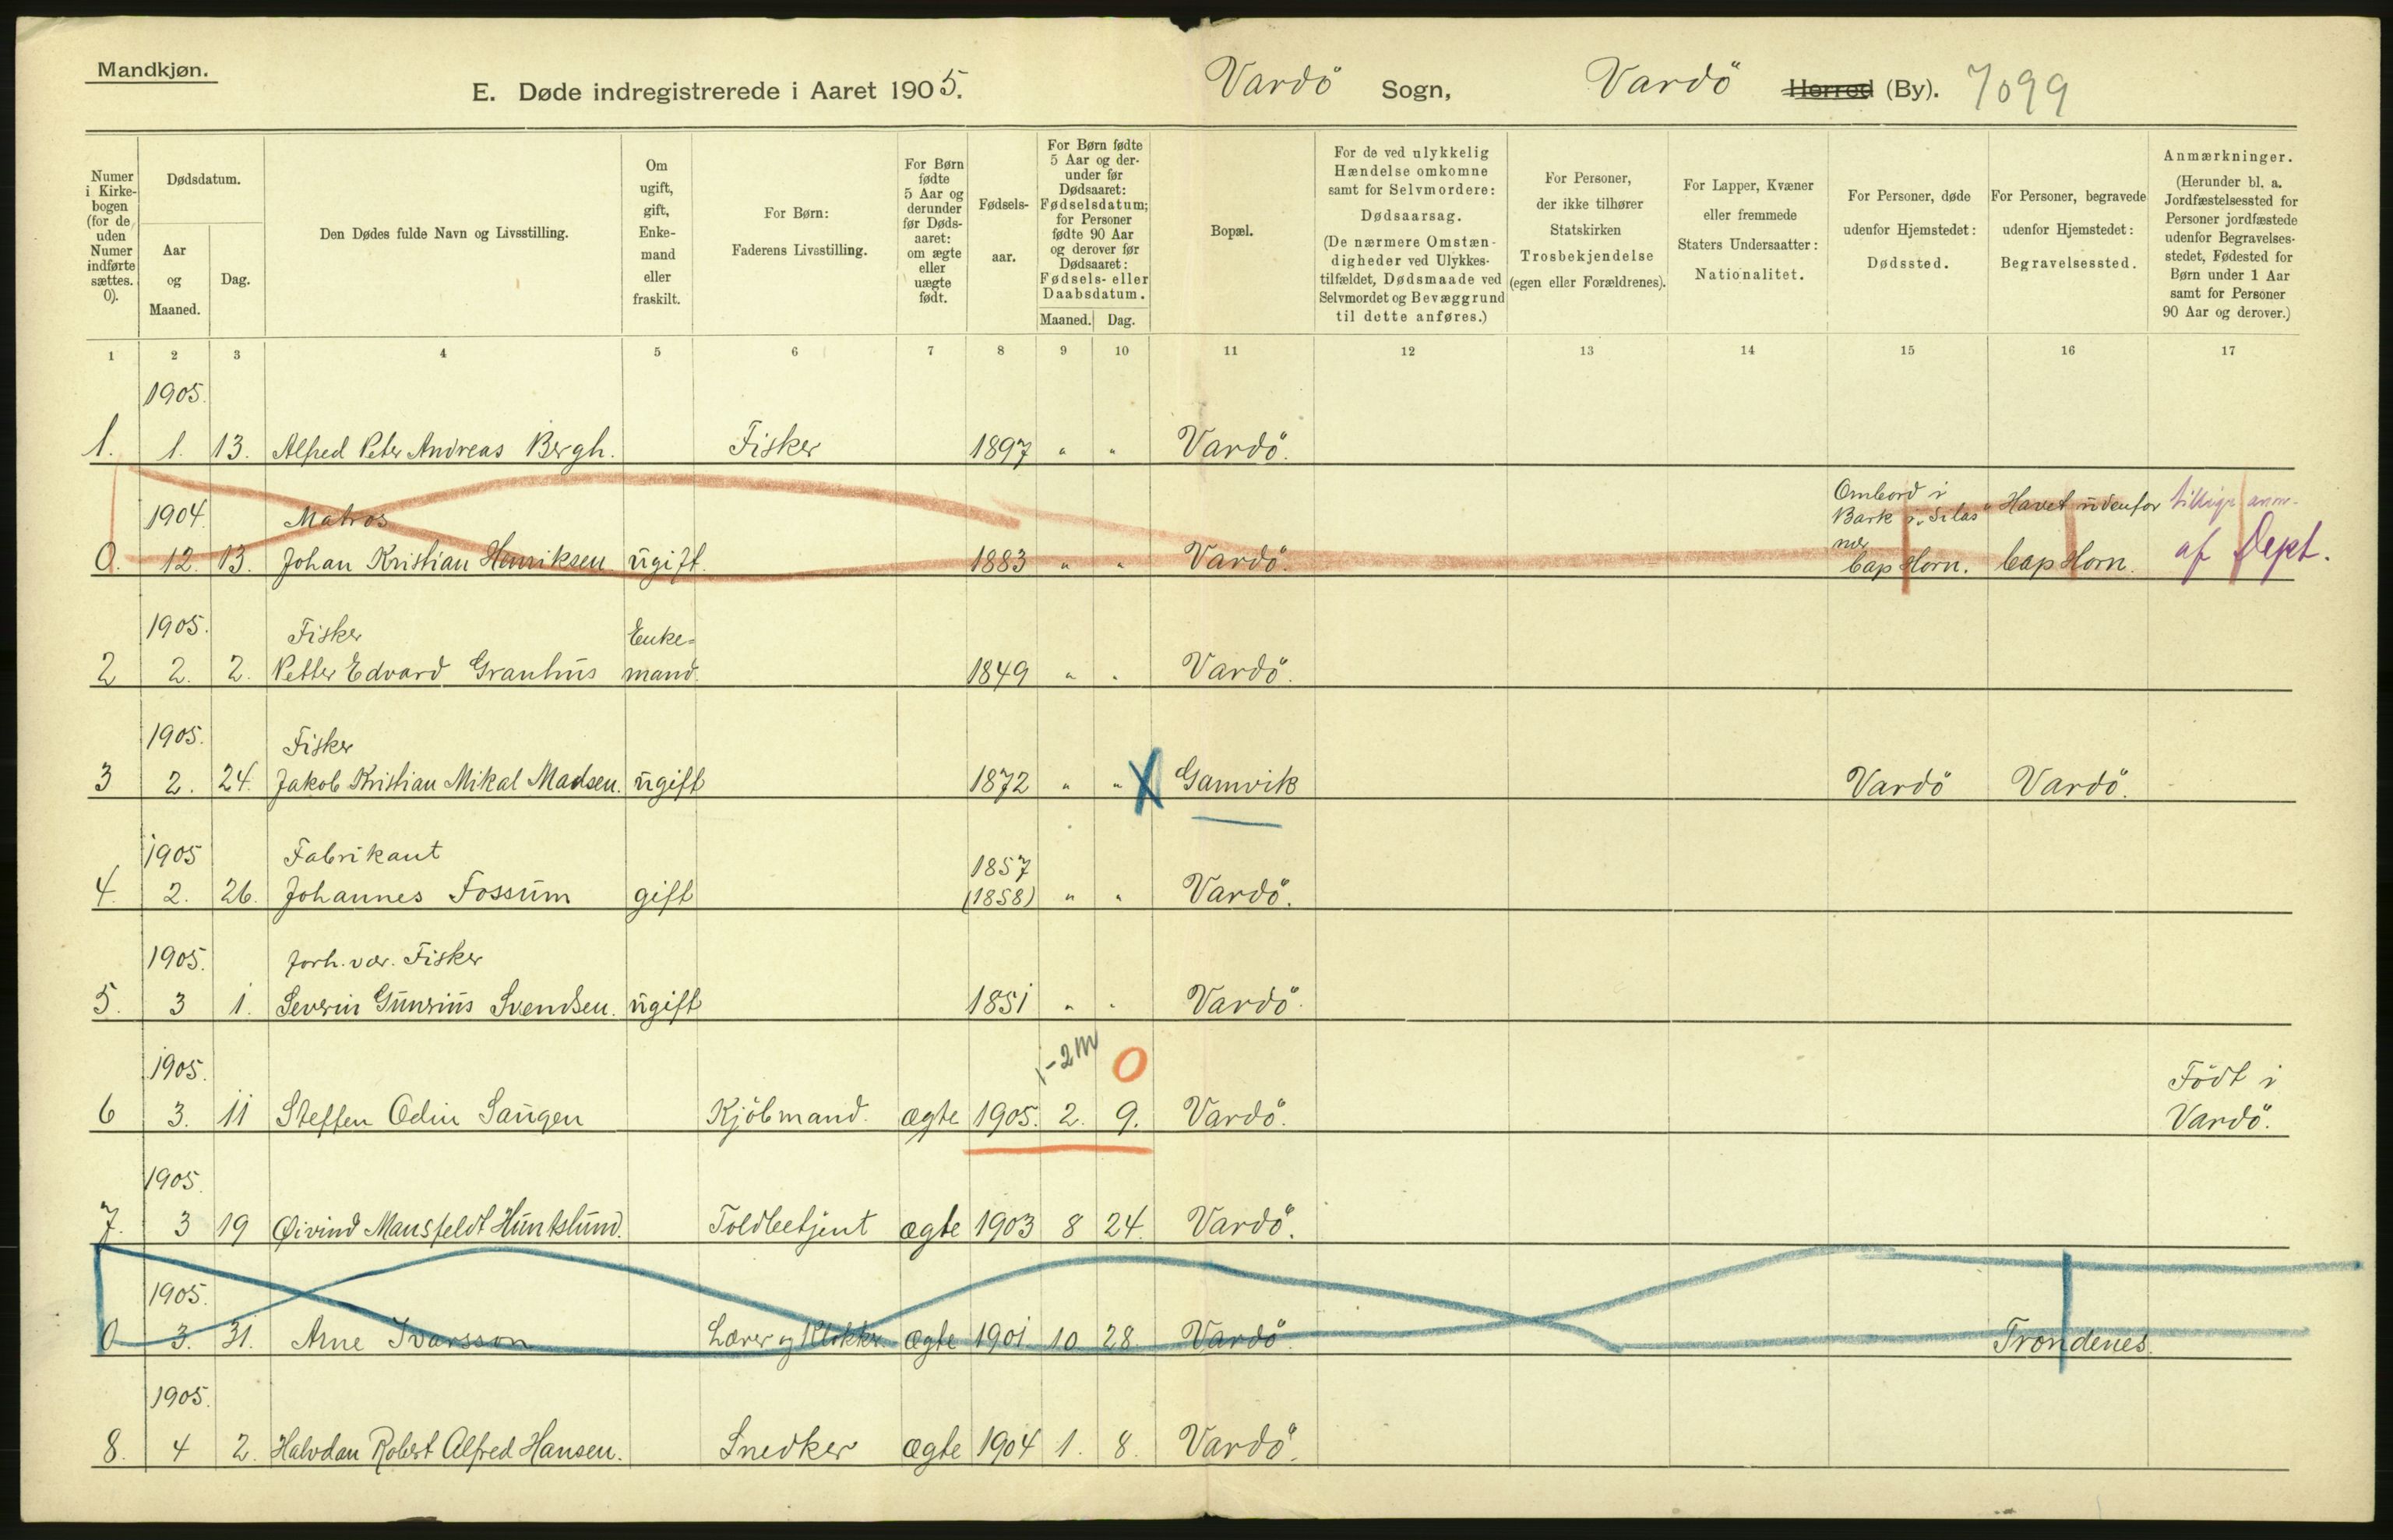 Mandkjøn.
E. Døde indregistrerede i Aaret 1905. Vardö Sogn, Vardö Herred (By). 7099
Numer i Kirkebogen (for de uden Numer indførte sættes. 0).
Dødsdatum.
Aar og Maaned.
Dag.
Den Dødes fulde Navn og Livsstilling.
Om ugift, gift, Enkemand eller fraskilt.
For Børn: Faderens Livsstilling.
For Børn fødte 5 Aar og derunder før Dødsaaret: om ægte eller uægte født.
Fødselsaar.
For Børn fødte 5 Aar og derunder før Dødsaaret: Fødselsdatum; for Personer fødte 90 Aar og derover før Dødsaaret: Fødsels- eller Daabsdatum.
Maaned. Dag.
Bopæl.
For de ved ulykkelig Hændelse omkomne samt for Selvmordere: Dødsaarsag. (De nærmere Omstændigheder ved Ulykkestilfældet, Dødsmaade ved Selvmordet og Bevæggrund til dette anføres.)
For Personer, der ikke tilhører Statskirken Trosbekjendelse (egen eller Forældrenes).
For Lapper, Kvæner eller fremmede Staters Undersaatter: Nationalitet.
For Personer, døde udenfor Hjemstedet: Dødssted.
For Personer, begravede udenfor Hjemstedet: Begravelsessted.
Anmærkninger. (Herunder bl. a. Jordfæstelsessted for Personer jordfæstede udenfor Begravelsesstedet, Fødested for Børn under 1 Aar samt for Personer 90 Aar og derover.)
1 2 3 4 5 6 7 8 9 10 11 12 13 14 15 16 17
1905.
1. 1. 13. Alfred Peter Andreas Bergh. Fisker 1897 " " Vardö.
1904. Matros Ombord i Bark "Silas" Havet udenfor tillige anm.
0. 12. 13. Johan Kristian Henriksen ugift. 1883 " " Vardö. nær Cap Horn. Cap Horn. af Dept.
1905. Fisker Enke=
2 2. 2. Petter Edvard Granhus mand. 1849 " " Vardö.
1905. Fisker
3 2. 24. Jakob Kristian Mikal Madsen. ugift 1872 " " X Gamvik Vardö Vardö.
1905 Fabrikant 1857
4. 2. 26. Johannes Fossum gift (1858) " " Vardö.
1905. forh. vær. Fisker
5. 3 1. Severin Gunerius Svendsen. ugift 1851 " " Vardö.
1905. 1-2 m 0 Födt i
6 3. 11 Steffen Odin Saugen Kjöbmand. ægte 1905. 2. 9. Vardö. Vardö.
1905.
7. 3 19 Øivind Mansfeldt Huntslund. Toldbetjent ægte 1903 8 24. Vardö.
1905.
0 3. 31. Arne Ivarsson Lærer og Klokker ægte 1901 10 28. Vardö. Trondenes.
1905.
8. 4 2. Halvdan Robert Alfred Hansen. Snedker ægte 1904 1. 8. Vardö.